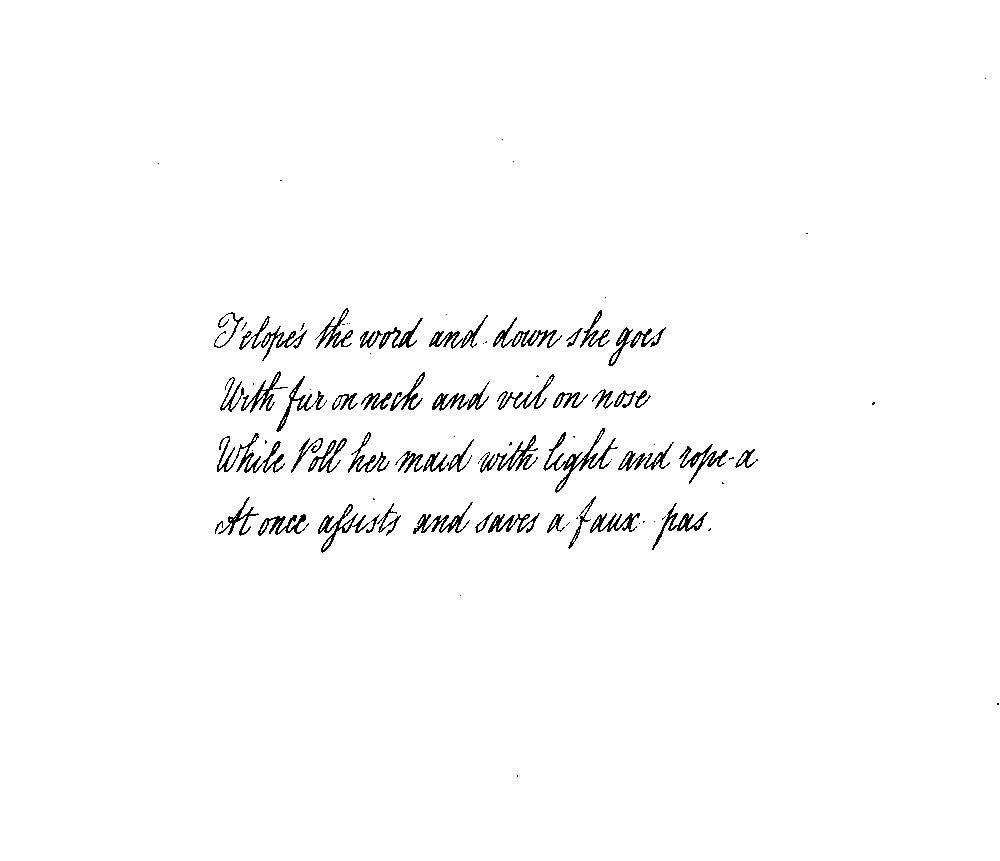 T'elope's the word and down she goes
With fur on neck and veil on nose
While Poll her maid with light and rope-a
At once aſsists and saves a faux pas.